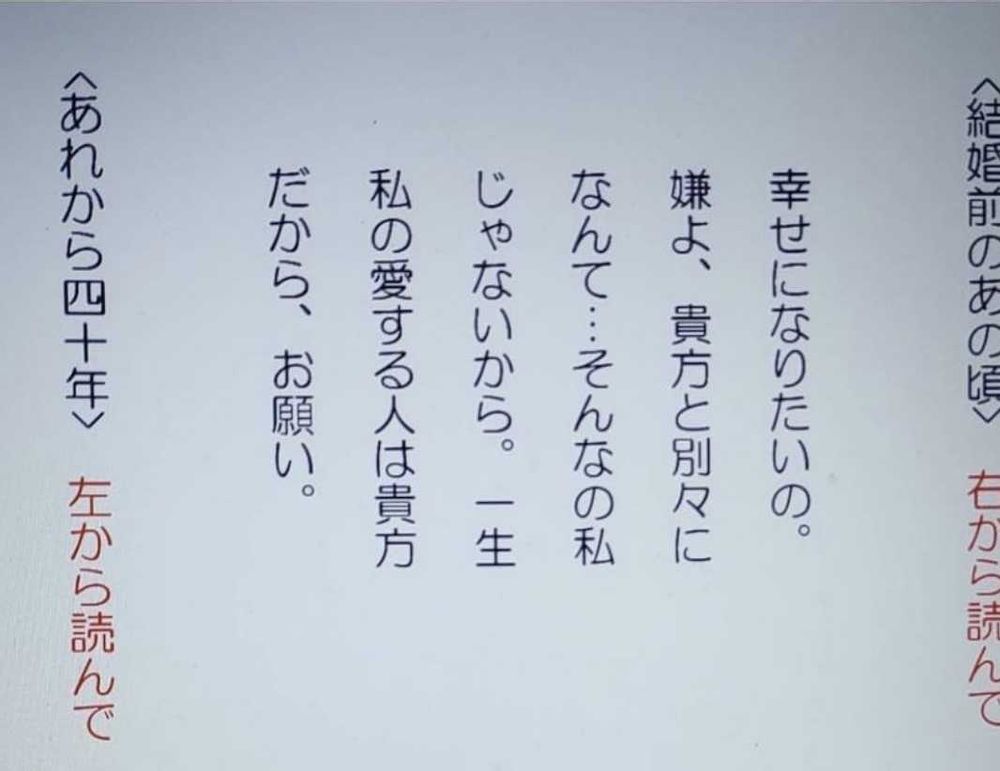 〈結婚前のあの頃〉 右から読んで
幸せになりたいの。
嫌よ、貴方と別々に
なんて…そんなの私
じゃないから。一生
私の愛する人は貴方
だから、お願い。
〈あれから四十年〉 左から読んで